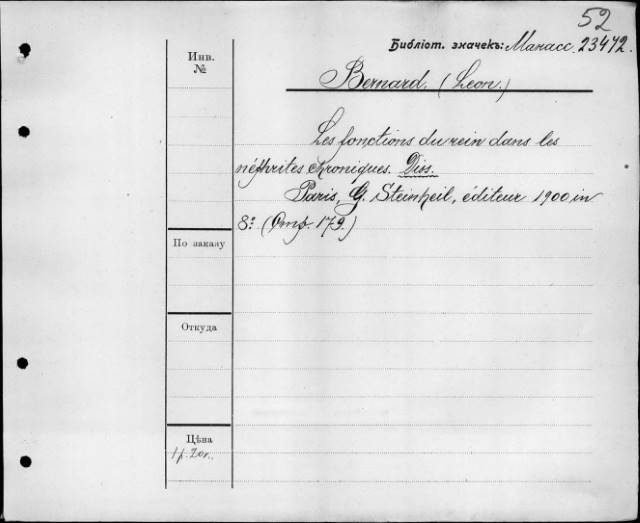 52
Библіот. значекъ: Манасс. 23472.
Инв.
№
Bernard. (Leon.)
Les fonctions du rein dans les
néphrites chroniques. Diss.
Paris, G. Steinheil, éditeur 1900 in
8º. (Стр. 179.)
По заказу
Откуда
Цѣна
1 р. 20 к.